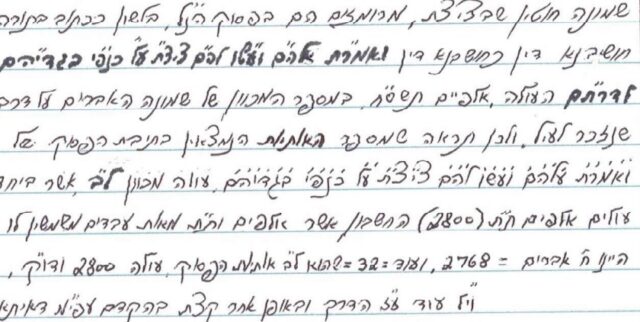 שמונה חוטין שבציצת, מרומזים הם בפסוק הנ"ל, בלשון ככתוב בתורה
חושבנא דין כחושבנא דין ואמרת אלהם ועשו להם ציצת על כנפי בגדיהם
לדרתם העולה, אלפיים תשס"ח, במספר המכוון של שמונה האברים על דרך
שנזכר לעיל, ולכן תראה שמספר האותיות הנמצאין בתיבת הפסוק של
ואמרת אלהם ועשו להם ציצת על כנפי בגדיהם, עולה מכוון ל"ב, אשר ביחד
עולים אלפים ת"ת (2800) החשבון אשר אלפים ות"ת מאות עבדים משמשין לו
היינו ח' אברים = 2768, ועוד =32= שהוא ל"ב אותיות הפסוק, עולה 2800 ודו"ק,
וי"ל עוד ע"ז הדרך ובאופן אחר קצת בהקדם עפ"מ דאיתא